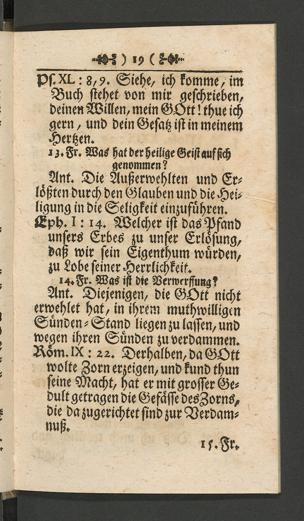 ) 19 (
Ps. XL : 8, 9. Siehe, ich komme, im
Buch stehet von mir geschrieben,
deinen Willen, mein GOtt! thue ich
gern, und dein Gesatz ist in meinem
Hertzen.
13. Fr. Was hat der heilige Geist auf sich
genommen?
Ant. Die Außerwehlten und Er-
lößten durch den Glauben und die Hei-
ligung in die Seligkeit einzuführen.
Eph. I : 14. Welcher ist das Pfand
unsers Erbes zu unser Erlösung,
daß wir sein Eigenthum würden,
zu Lobe seiner Herrlichkeit.
14. Fr. Was ist die Verwerffung?
Ant. Diejenigen, die GOtt nicht
erwehlet hat, in ihrem muthwilligen
Sünden-Stand liegen zu lassen, und
wegen ihren Sünden zu verdammen.
Röm. IX : 22. Derhalben, da GOtt
wolte Zorn erzeigen, und kund thun
seine Macht, hat er mit grosser Ge-
dult getragen die Gefässe des Zorns,
die da zugerichtet sind zur Verdam-
nuß.
15. Fr.